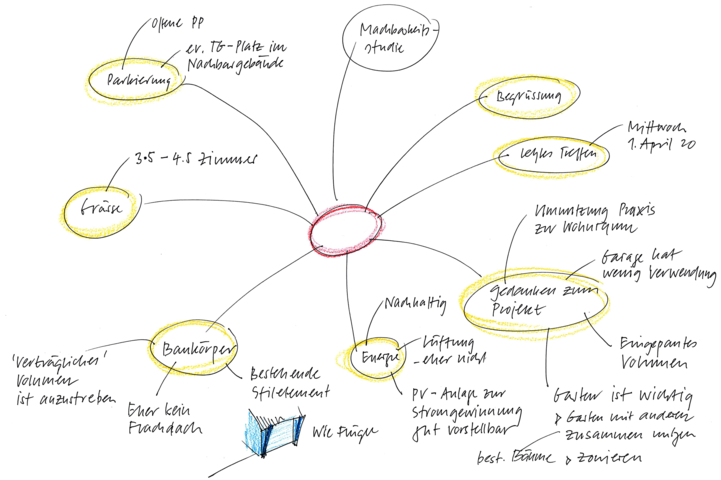 Offene PP
ev. TG-Platz im
Nachbargebäude
Parkierung
Machbarkeits-
studie
Begrüssung
Mittwoch
1. April 20
letztes Treffen
3.5 – 4.5 Zimmer
Grösse
Umnutzung Praxis
zu Wohnraum
Garage hat
wenig Verwendung
Gedanken zum
Projekt
Eingepasstes
Volumen
Garten ist wichtig
Garten mit anderen
zusammen nutzen
best. Bäume
zonieren
Nachhaltig
Energie
Lüftung
– eher nicht
PV-Anlage zur
Stromgewinnung
gut vorstellbar
Baukörper
'Verträgliches'
Volumen
ist anzustreben
Eher kein
Flachdach
Bestehende
Stilelement
Wie